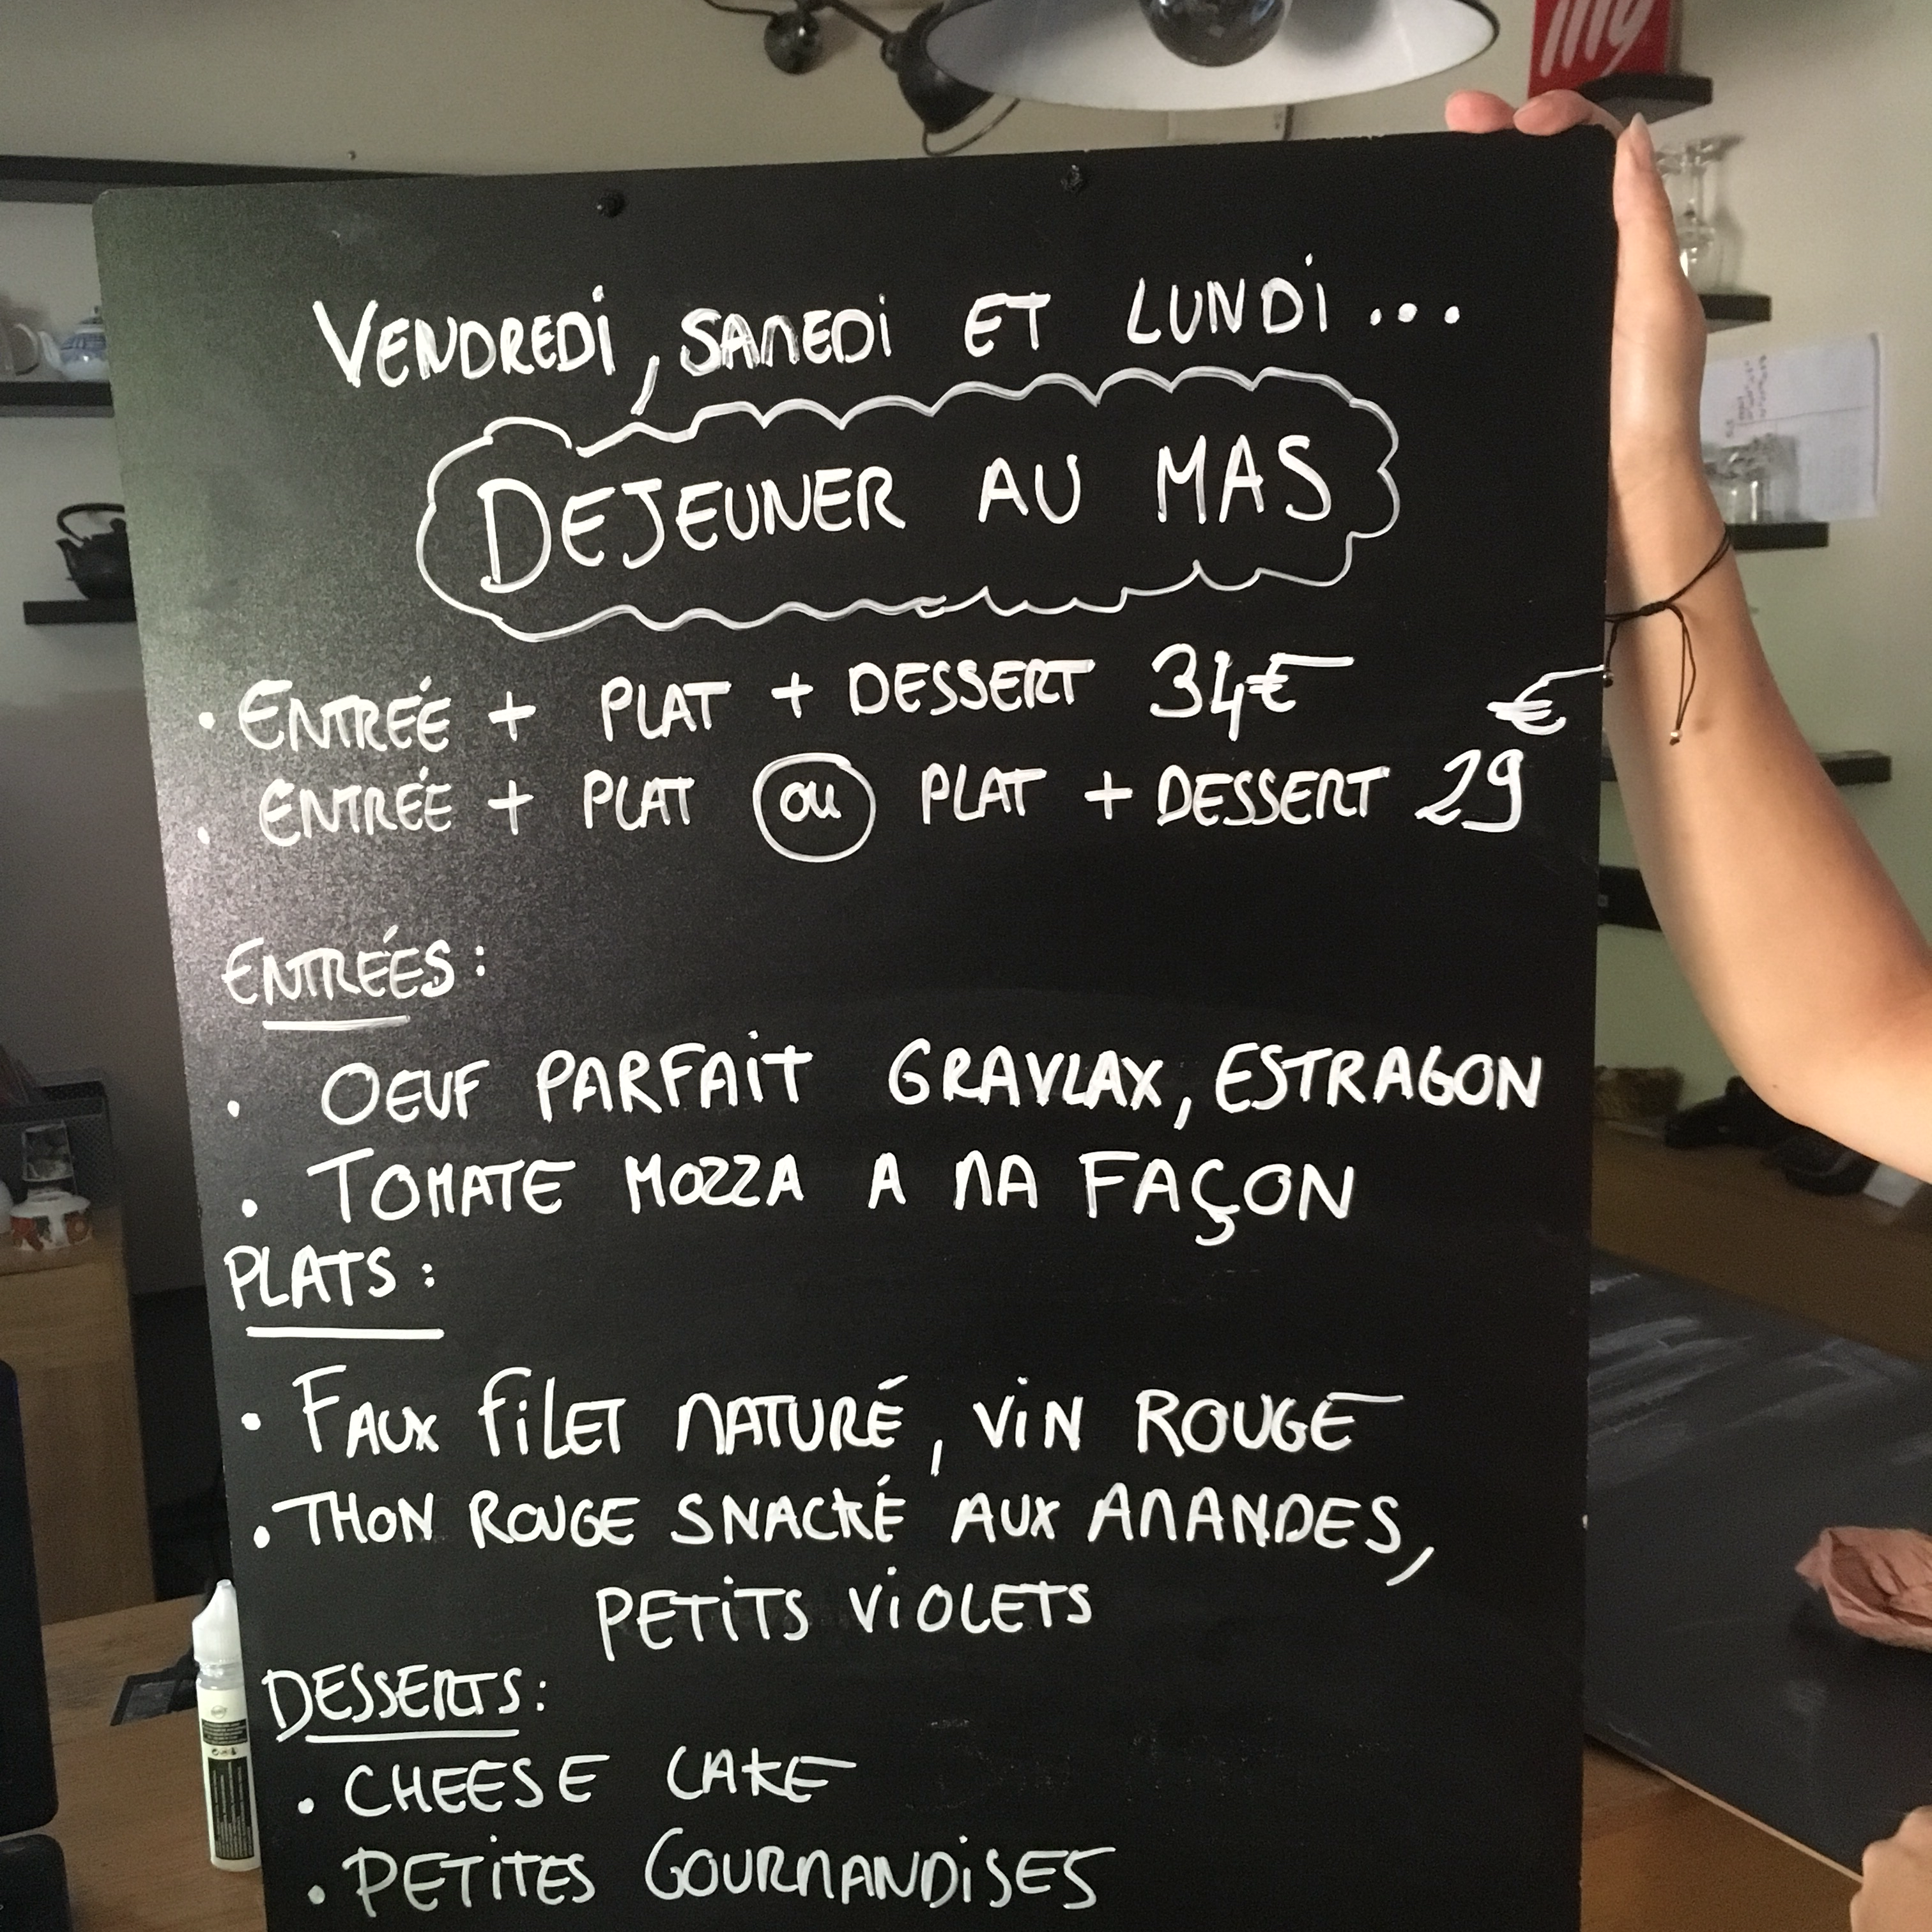 illy
VENDREDi, SAMEDi ET LUNDi...
DEJEUNER AU MAS
• ENTRÉE + PLAT + DESSERT 34€
€
• ENTRÉE + PLAT OU PLAT + DESSERT 29
ENTRÉES :
• OEUF PARFAiT GRAVLAX, ESTRAGON
• TOMATE MOZZA A MA FAÇON
PLATS :
• FAUX FiLET MATURÉ, ViN ROUGE
• THON ROUGE SNACKÉ AUX AMANDES,
PETiTS ViOLETS
DESSERTS :
• CHEESE CAKE
• PETiTES GOURMANDiSES